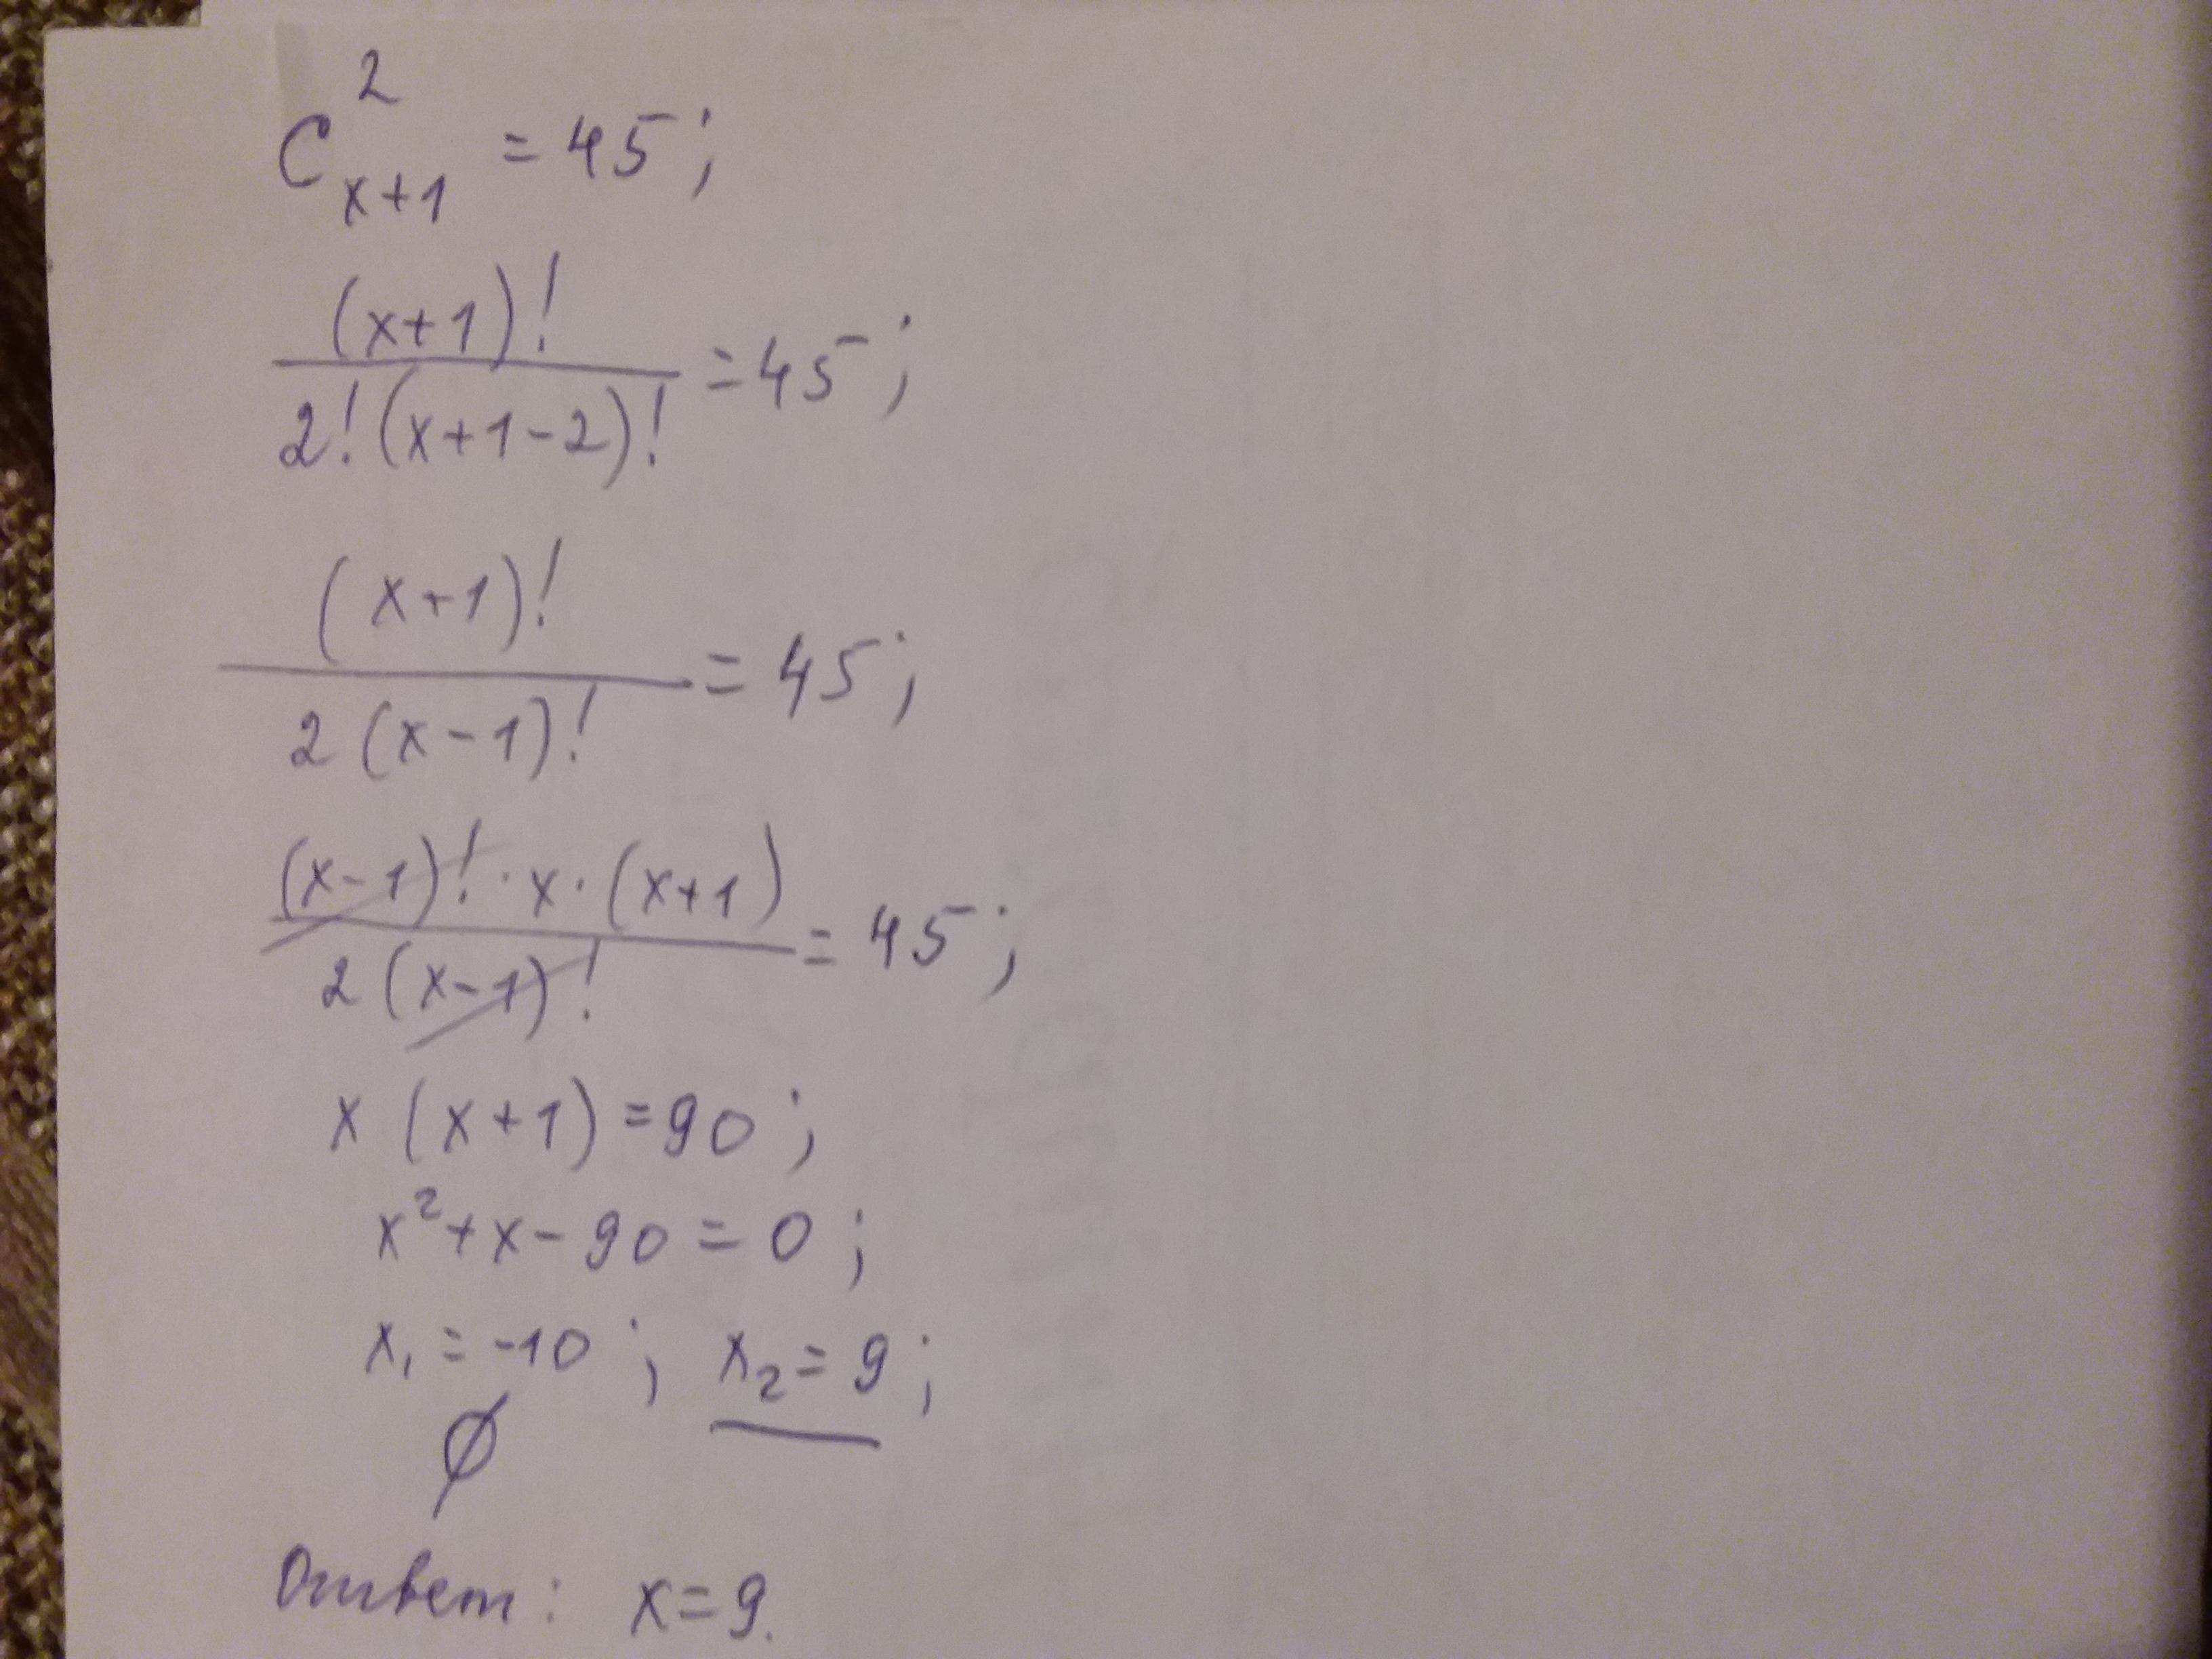 C²ₓ₊₁ = 45;
(x+1)! / 2!(x+1-2)! = 45;
(x+1)! / 2(x-1)! = 45;
(x-1)!·x·(x+1) / 2(x-1)! = 45;
x (x+1) = 90;
x²+x-90 = 0;
x₁ = -10; x₂ = 9;
∅
Ответ: x=9.